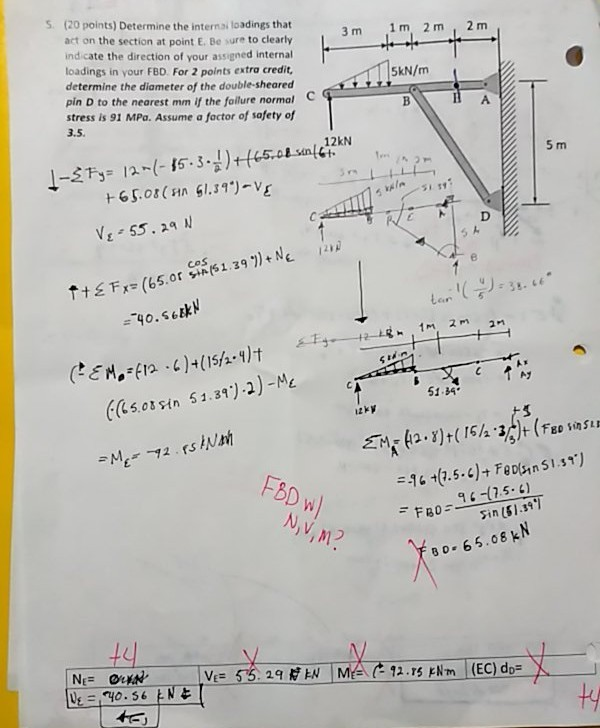 5. (20 points) Determine the internal loadings that
act on the section at point E. Be sure to clearly
indicate the direction of your assigned internal
loadings in your FBD. For 2 points extra credit,
determine the diameter of the double-sheared
pin D to the nearest mm if the failure normal
stress is 91 MPa. Assume a factor of safety of
3.5.
3 m 1 m 2 m 2 m
5kN/m
C B A
12kN
5 m
D
↓-ΣFy= 12-(-15·3·1/2)+(65.08 sin(6
+65.08(sin 51.39°)-VE
VE=55.29 N
3m 1m 2m 2m
5 kN/m
51.39°
C B E A
12kN
5 m
B
tan⁻¹(4/5)=38.66°
↑+ΣFx=(65.08 cos(51.39°))+NE
=-40.568kN
ΣFy= 12
1m 2m 2m
C B C Ax
Ay
51.39°
12kN
(+ΣM =(-12·6)+(15/2·4)+
(-(65.08sin 51.39°)·2)-ME
=ME=-92.85kNm
ΣMA=(-12·8)+(15/2·
+(FBD sin51.
=-96+(7.5·6)+FBD(sin51.39°)
=FBD=96-(7.5·6)/sin(51.39°)
FBD=65.08kN
FBD w/
N,V,M?
+4
NE= VE= 55.29 kN ME= -92.85 kN·m (EC) dD=
NE = -40.56 kN
(←)
+4